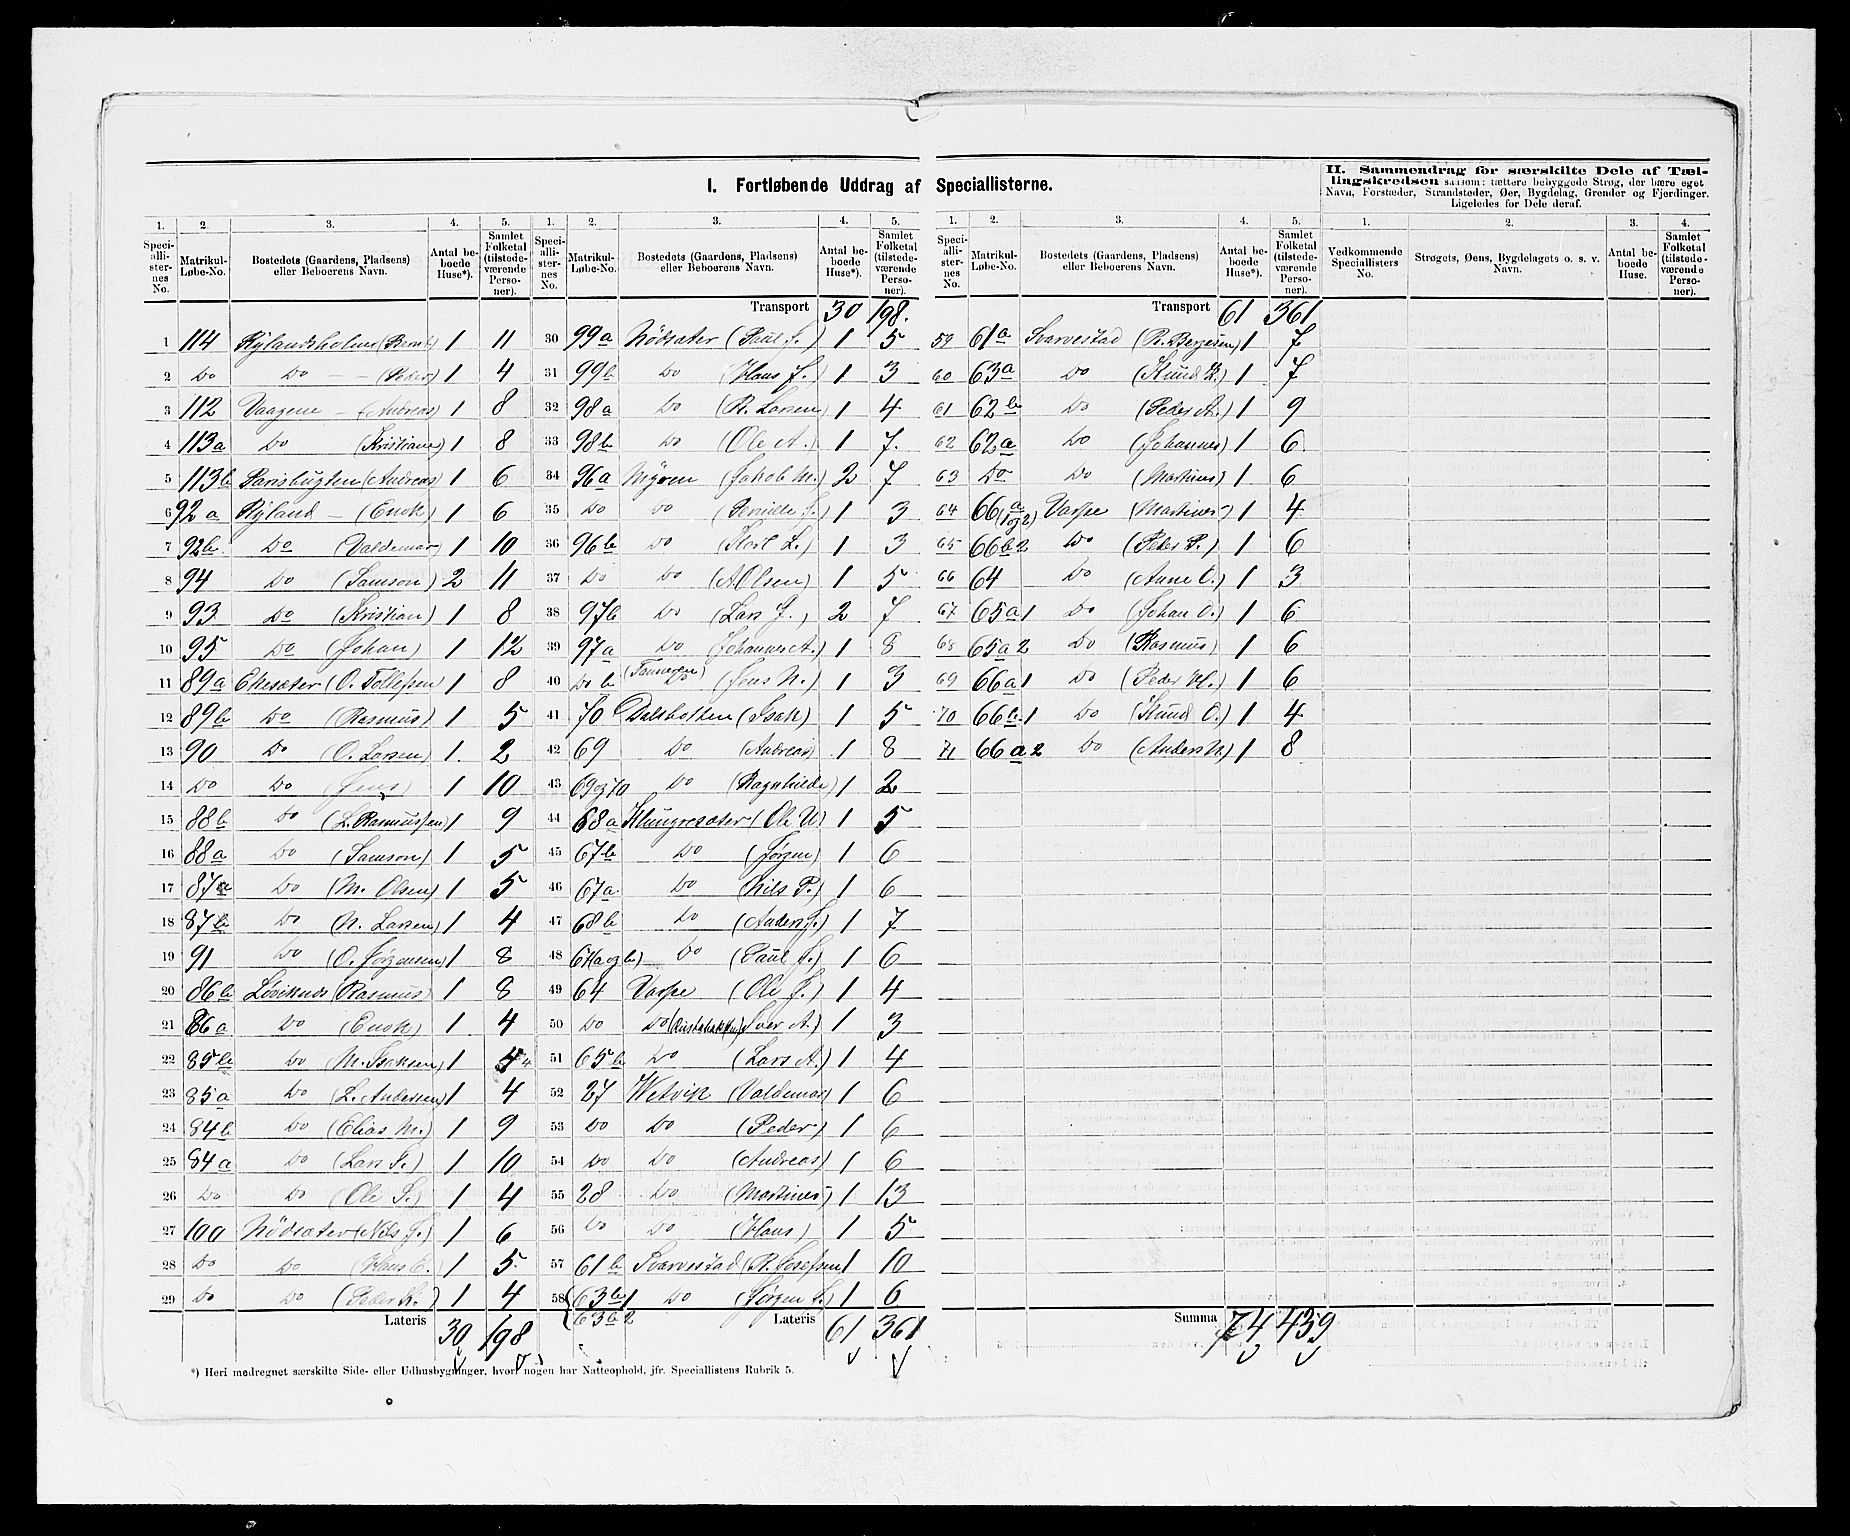 I. Fortløbende Uddrag af Speciallisterne.
II. Sammendrag for særskilte Dele af Tællingskredsen saasom: tættere bebyggede Strøg, der bære eget Navn, Forstæder, Strandsteder, Øer, Bygdelag, Grender og Fjerdinger. Ligeledes for Dele deraf.
1. 2. 3. 4. 5.
Speciallisternes No. Matrikul-Løbe-No. Bostedets (Gaardens, Pladsens) eller Beboerens Navn. Antal beboede Huse*). Samlet Folketal (tilstedeværende Personer).
1 114 Rylandsholm (Bernt) 1 11
2 Do Do - (Peder) 1 4
3 112 Vaagene - (Andreas) 1 8
4 113a Do (Kristiane) 1 8
5 113b Parisbugten (Andreas) 1 6
6 92a Ryland - (Enok) 1 6
7 92b Do (Valdemar) 1 10
8 94 Do (Samson) 2 11
9 93 Do (Kristian) 1 8
10 95 Do (Johan) 1 12
11 89a Ekesæter (O. Tollefsen 1 8
12 89b Do (Rasmus) 1 5
13 90 Do (O. Larsen) 1 2
14 Do Do (Jens) 1 10
15 88b Do (L. Rasmussen) 1 9
16 88a Do (Samson) 1 5
17 87a Do (M. Olsen) 1 5
18 87b Do (N. Larsen) 1 4
19 91 Do (O. Jørgensen) 1 8
20 86b Løviknes (Rasmus) 1 8
21 86a Do (Enok) 1 4
22 85b Do M. Isaksen) 1 4
23 85a Do (L. Andersen) 1 4
24 84b Do (Elias M.) 1 9
25 84a Do (Lars S.) 1 10
26 Do Do (Ole S.) 1 4
27 100 Nödsæter (Nils J.) 1 6
28 Do Do (Hans E.) 1 5
29 Do Do (Peder K.) 1 4
Lateris 30 198
1. 2. 3. 4. 5.
Speciallisternes No. Matrikul-Løbe-No. Bostedets (Gaardens, Pladsens) eller Beboerens Navn. Antal beboede Huse*). Samlet Folketal (tilstedeværende Personer).
Transport 30 198.
30 99a Nödsæter (Paul J.) 1 5
31 99b Do (Hans J.) 1 3
32 98a Do (R. Larsen) 1 4
33 98b Do (Ole A.) 1 7.
34 96a Myren (Jakob M.) 2 7
35 Do Do (Pernille S.) 1 3
36 96b Do L.) 1 3
37 Do Do (A Olsen) 1 5
38 97b Do (Lars J.) 2 7
39 97a Do (Johannes A.) 1 8
40 Do b Do (Jens N.) 1 3
41 70 Dalsbotten (Isak) 1 5
42 69 Do (Andreas) 1 8
43 69og70 Do (Ragnhilde) 1 2
44 68a Klungresæter (Ole U) 1 5
45 67b Do (Jørgen) 1 6
46 67a Do (Nils P.) 1 6
47 68b Do (Anders J.) 1 7
48 67(a og b) Do (Paul J.) 1 6
49 64 Varpe (Ole J.) 1 4
50 Do Do Iver A.) 1 3
51 65b Do (Lars A.) 1 4
52 27 Wetvik (Valdemar) 1 6
53 Do Do (Peder) 1 6
54 Do Do (Andreas) 1 6
55 28 Do (Martines) 1 13
56 Do Do (Hans) 1 5
57 61b Svarvestad (R. Josefsen 1 10
58 63b1 Do (Jørgen S.) 1 6
63b2
Lateris 61 361
1. 2. 3. 4. 5.
Speciallisternes No. Matrikul-Løbe-No. Bostedets (Gaardens, Pladsens) eller Beboerens Navn. Antal beboede Huse*). Samlet Folketal (tilstedeværende Personer).
Transport 61 361
59 61a Svarvestad (R. Bergesen) 1 7
60 63a Do (Knud R.) 1 7
61 62b Do (Peder A.) 1 9
62 62a Do (Johannes) 1 6
63 Do Do (Martines) 1 6
64 66a (1og2) Varpe (Martines) 1 4
65 66b2 Do (Peder P.) 1 6
66 64 Do (Anne O.) 1 3
67 65a1 Do (Johan O.) 1 6
68 65a2 Do (Rasmus) 1 6
69 66a1 Do (Peder H.) 1 6
70 66b1 Do (Knud O.) 1 4
71 66a2 Do (Anders N.) 1 8
Summa 74 439
1. 2. 3. 4.
Vedkommende Speciallisters No. Strøgets, Øens, Bygdelagets o. s. v. Navn. Antal beboede Huse. Samlet Folketal (tilstedeværende Personer).
*) Heri medregnet særskilte Side- eller Udhusbygninger, hvori nogen har Natteophold, jfr. Speciallistens Rubrik 5.